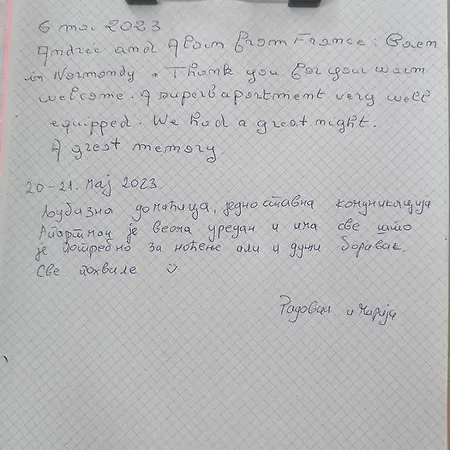 6 mai 2023
Andrée and Alain from France. Caen
in Normandy. Thank you for your warm
welcome. A superb apartment very well
equipped. We had a great night.
A great memory
20-21. мај 2023.
Љубазна домаћица, једноставна комуникација
Апартман је веома уредан и има све што
је потребно за ноћење али и дужи боравак.
Све похвале
Радован и Марија